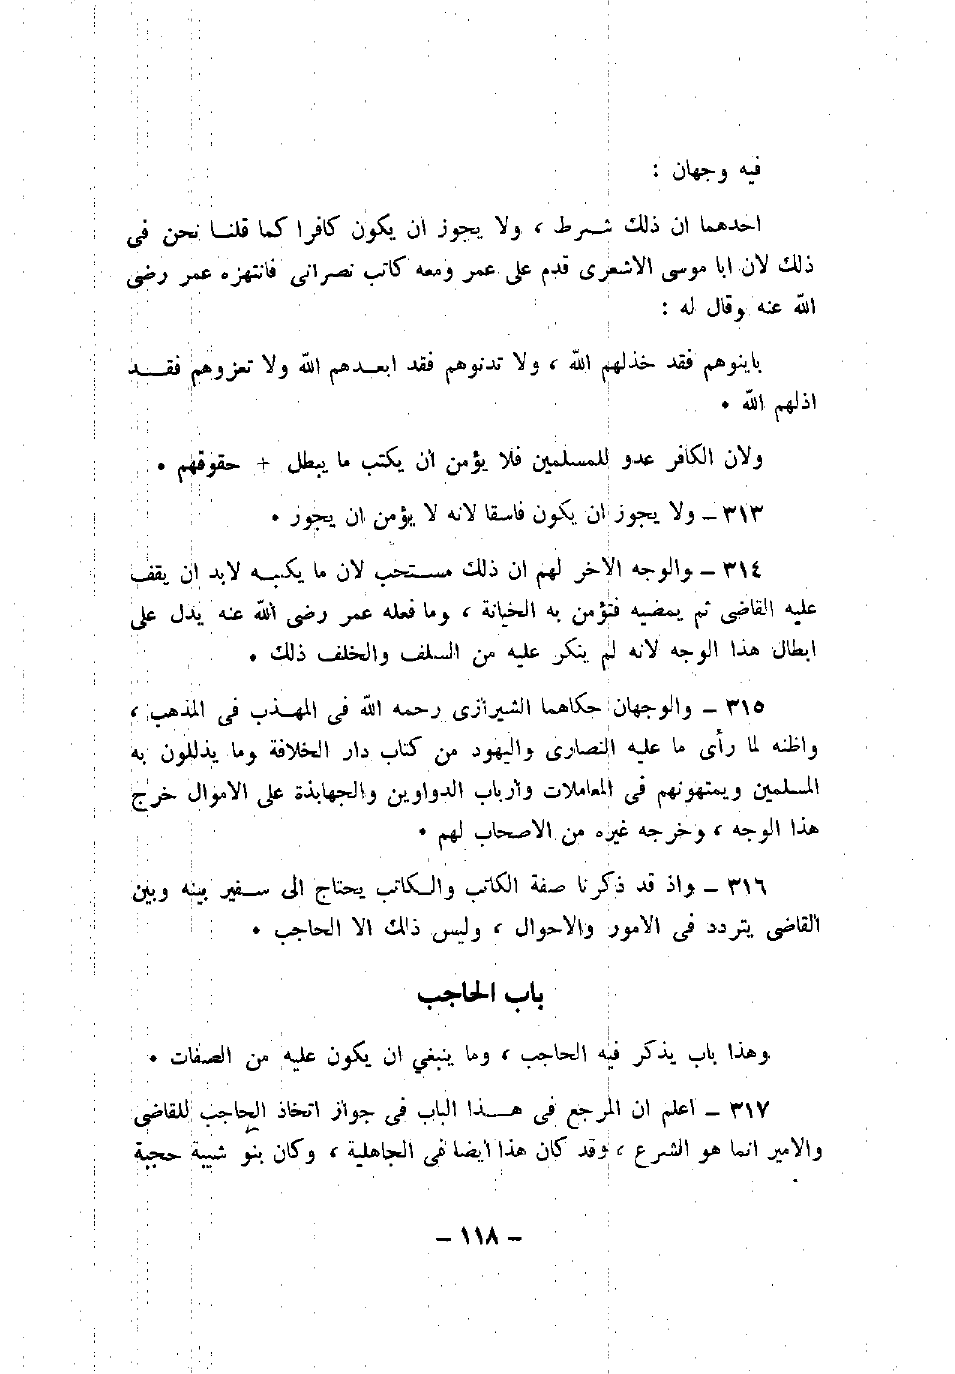 فيه وجهان :
احدهما ان ذلك شرط ، ولا يجوز ان يكون كافرا كما قلنا نحن فى
ذلك لان ابا موسى الاشعرى قدم على عمر ومعه كاتب نصرانى فانتهزه عمر رضى
الله عنه وقال له :
باينوهم فقد خذلهم الله ، ولا تدنوهم فقد ابعدهم الله ولا تعزوهم فقد
اذلهم الله •
ولان الكافر عدو للمسلمين فلا يؤمن أن يكتب ما يبطل + حقوقهم •
٣١٣ – ولا يجوز ان يكون فاسقا لانه لا يؤمن ان يجوز •
٣١٤ – والوجه الاخر لهم ان ذلك مستحب لان ما يكتبه لابد ان يقف
عليه القاضى ثم يمضيه فتؤمن به الخيانة ، وما فعله عمر رضى الله عنه يدل على
ابطال هذا الوجه لانه لم ينكر عليه من السلف والخلف ذلك •
٣١٥ – والوجهان حكاهما الشيرازى رحمه الله فى المهذب فى المذهب ،
واظنه لما رأى ما عليه النصارى واليهود من كتاب دار الخلافة وما يذللون به
المسلمين ويمتهونهم فى المعاملات وأرباب الدواوين والجهابذة على الاموال خرج
هذا الوجه ، وخرجه غيره من الاصحاب لهم •
٣١٦ – واذ قد ذكرنا صفة الكاتب والكاتب يحتاج الى سفير بينه وبين
القاضى يتردد فى الامور والاحوال ، وليس ذالك الا الحاجب •
باب الحاجب
وهذا باب يذكر فيه الحاجب ، وما ينبغي ان يكون عليه من الصفات •
٣١٧ – أعلم ان المرجع فى هذا الباب فى جواز اتخاذ الحاجب للقاضى
والامير انما هو الشرع ، وقد كان هذا أيضا فى الجاهلية ، وكان بنو شيبة حجبة
– ١١٨ –